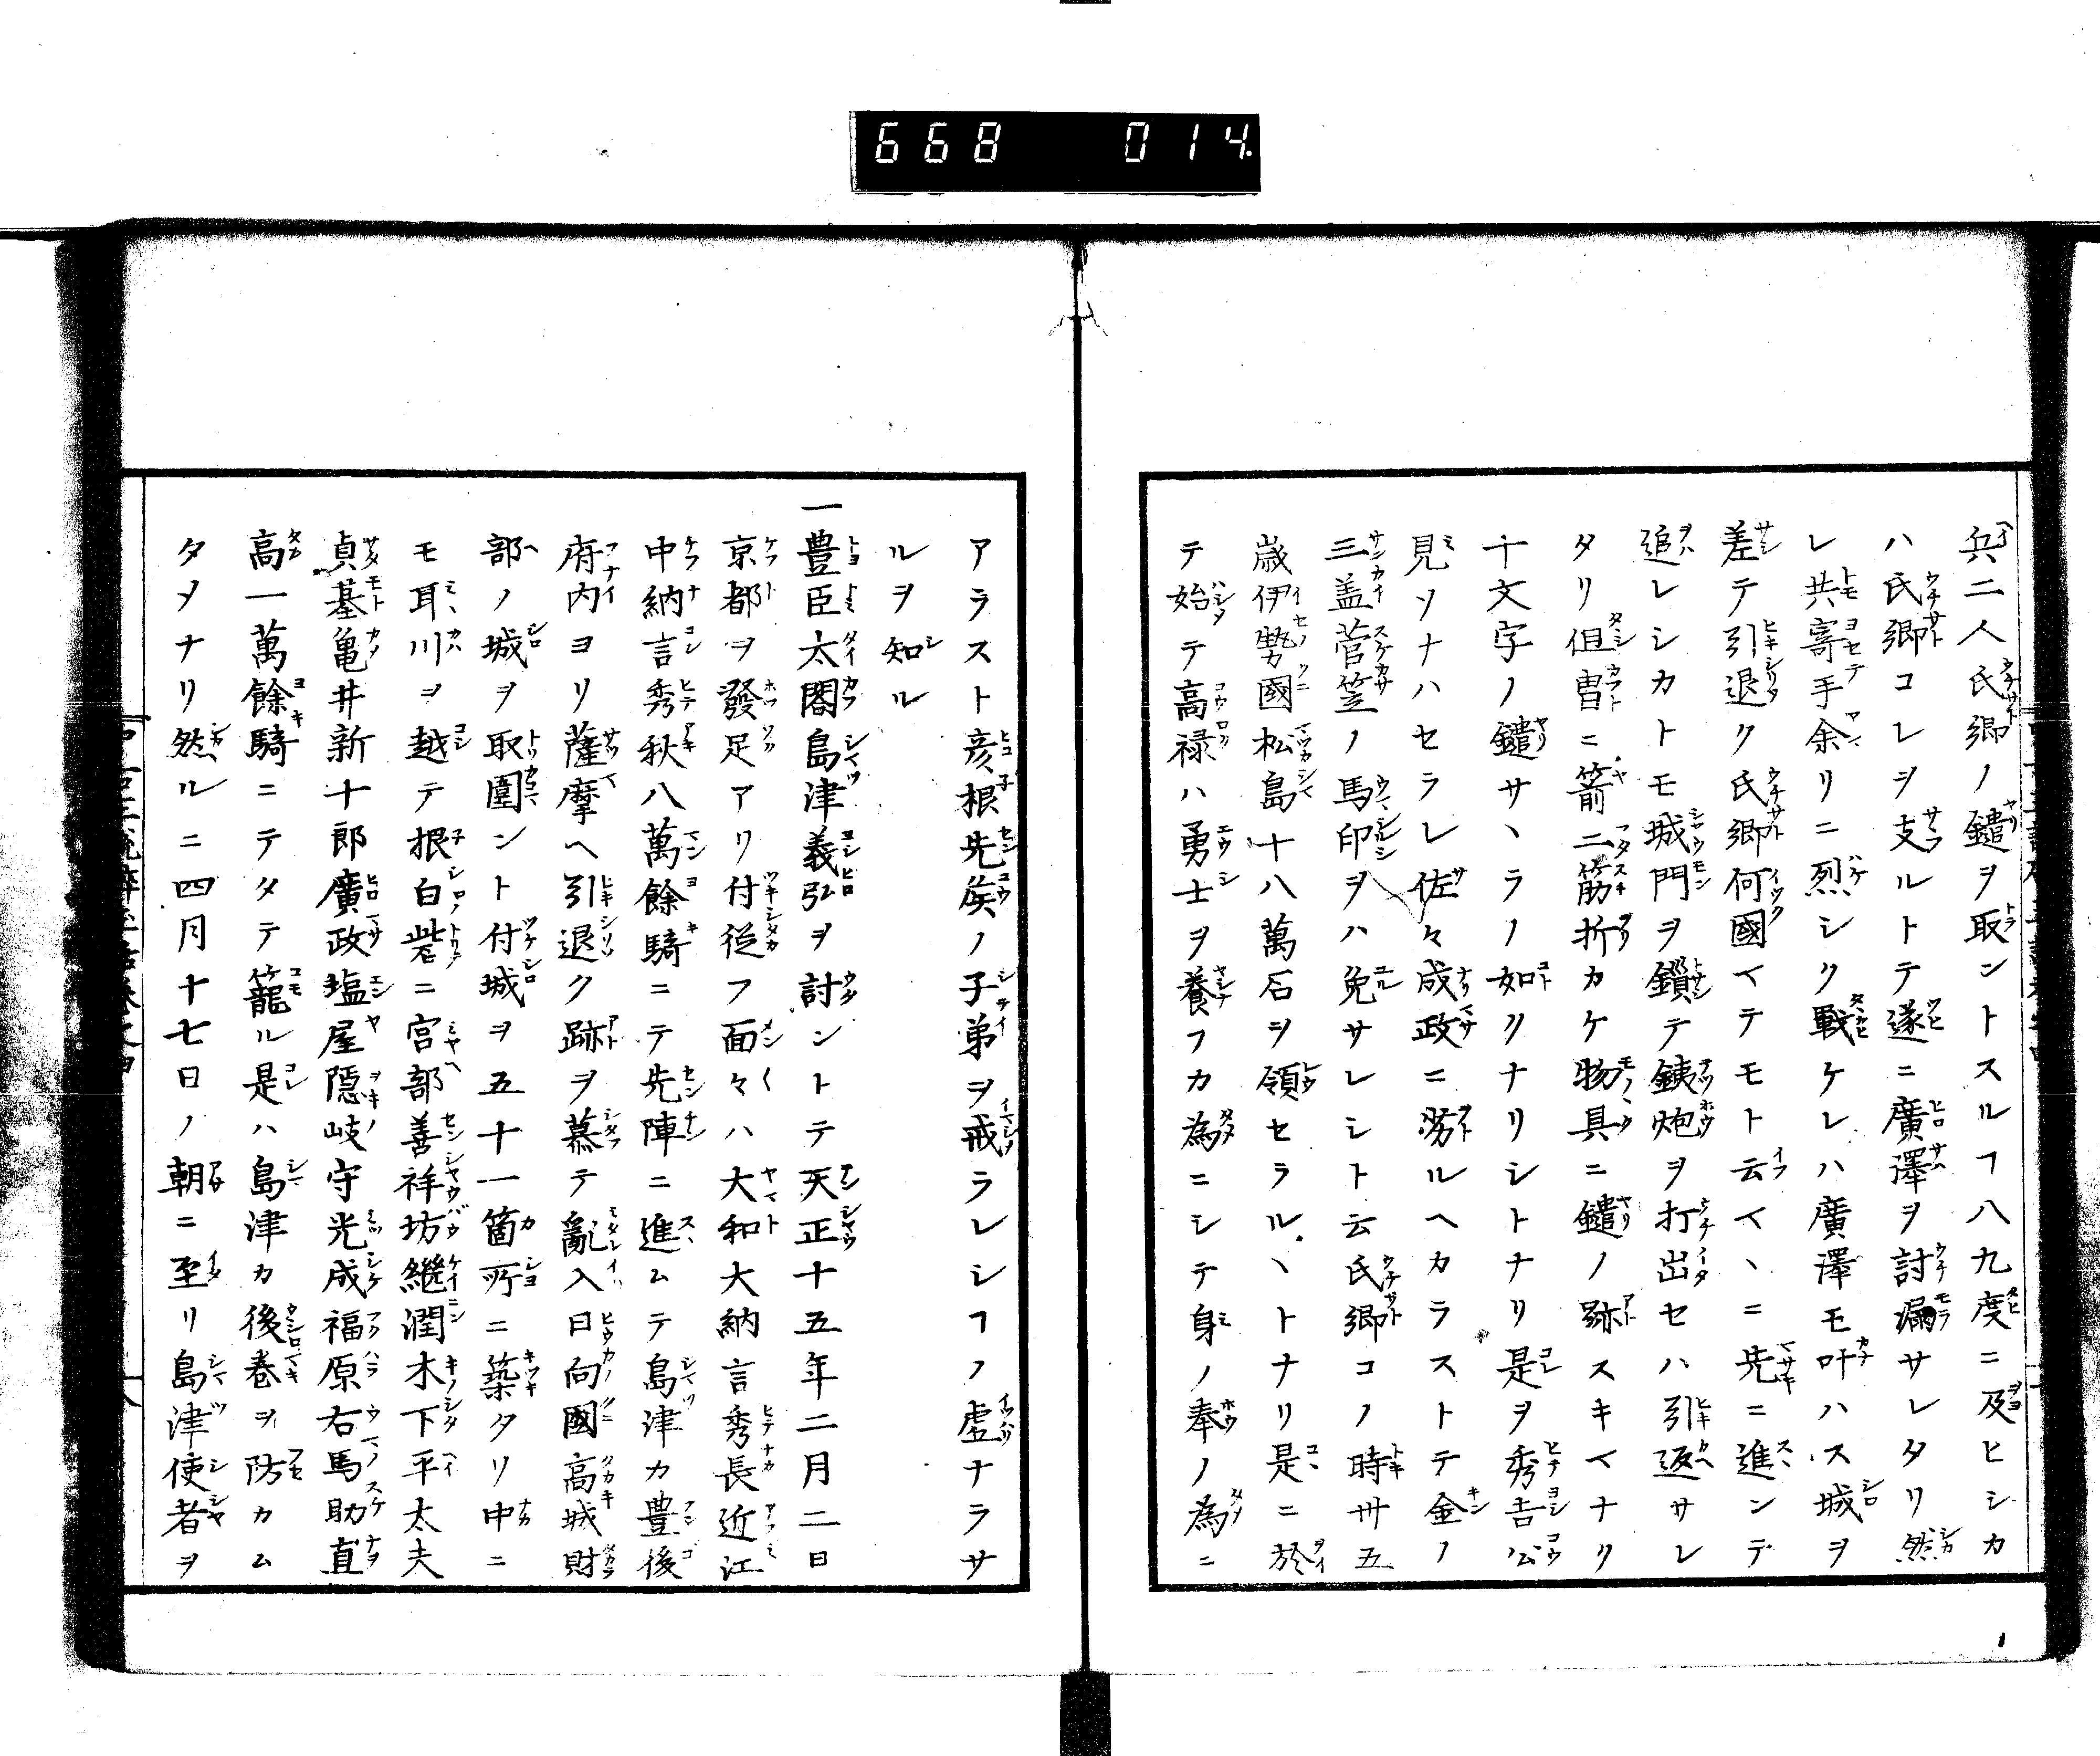 668 014
兵二人氏郷ノ鑓ヲ取ントスルヿ八九度ニ及ヒシカ
ハ氏郷コレヲ支ルトテ遂ニ廣澤ヲ討漏サレタリ然
レ共寄手余リニ烈シク戰ケレハ廣澤モ叶ハス城ヲ
差テ引退ク氏郷何國イテモト云イヽニ先ニ進ンデ
追レシカトモ城門ヲ鎖テ銕炮ヲ打出セハ引返サレ
タリ但冑ニ箭二筋折カケ物具ニ鑓ノ跡スキイナク
十文字ノ鑓サヽラノ如クナリシトナリ是ヲ秀吉公
見ソナハセラレ佐々成政ニ劣ルヘカラストテ金ノ
三盖菅笠ノ馬印ヲハ免サレシト云氏郷コノ時卅五
歳伊勢國松島十八萬石ヲ領セラルヽトナリ是ニ於
テ始テ高禄ハ勇士ヲ養フカ為ニシテ身ノ奉ノ為ニ
アラスト彦根先矦ノ子弟ヲ戒ラレシヿノ虚ナラサ
ルヲ知ル
一豊臣太閤島津義弘ヲ討ントテ天正十五年二月二日
京都ヲ發足アリ付従フ面々ハ大和大納言秀長近江
中納言秀秋八萬餘騎ニテ先陣ニ進ムテ島津カ豊後
府内ヨリ薩摩ヘ引退ク跡ヲ慕テ亂入日向國高城財
部ノ城ヲ取圍ント付城ヲ五十一箇所ニ築タリ中ニ
モ耳川ヲ越テ根白砦ニ宮部善祥坊継潤木下平太夫
貞基亀井新十郎廣政塩屋隠岐守光成福原右馬助直
高一萬餘騎ニテタテ籠ル是ハ島津カ後巻ヲ防カム
タメナリ然ルニ四月十七日ノ朝ニ至リ島津使者ヲ